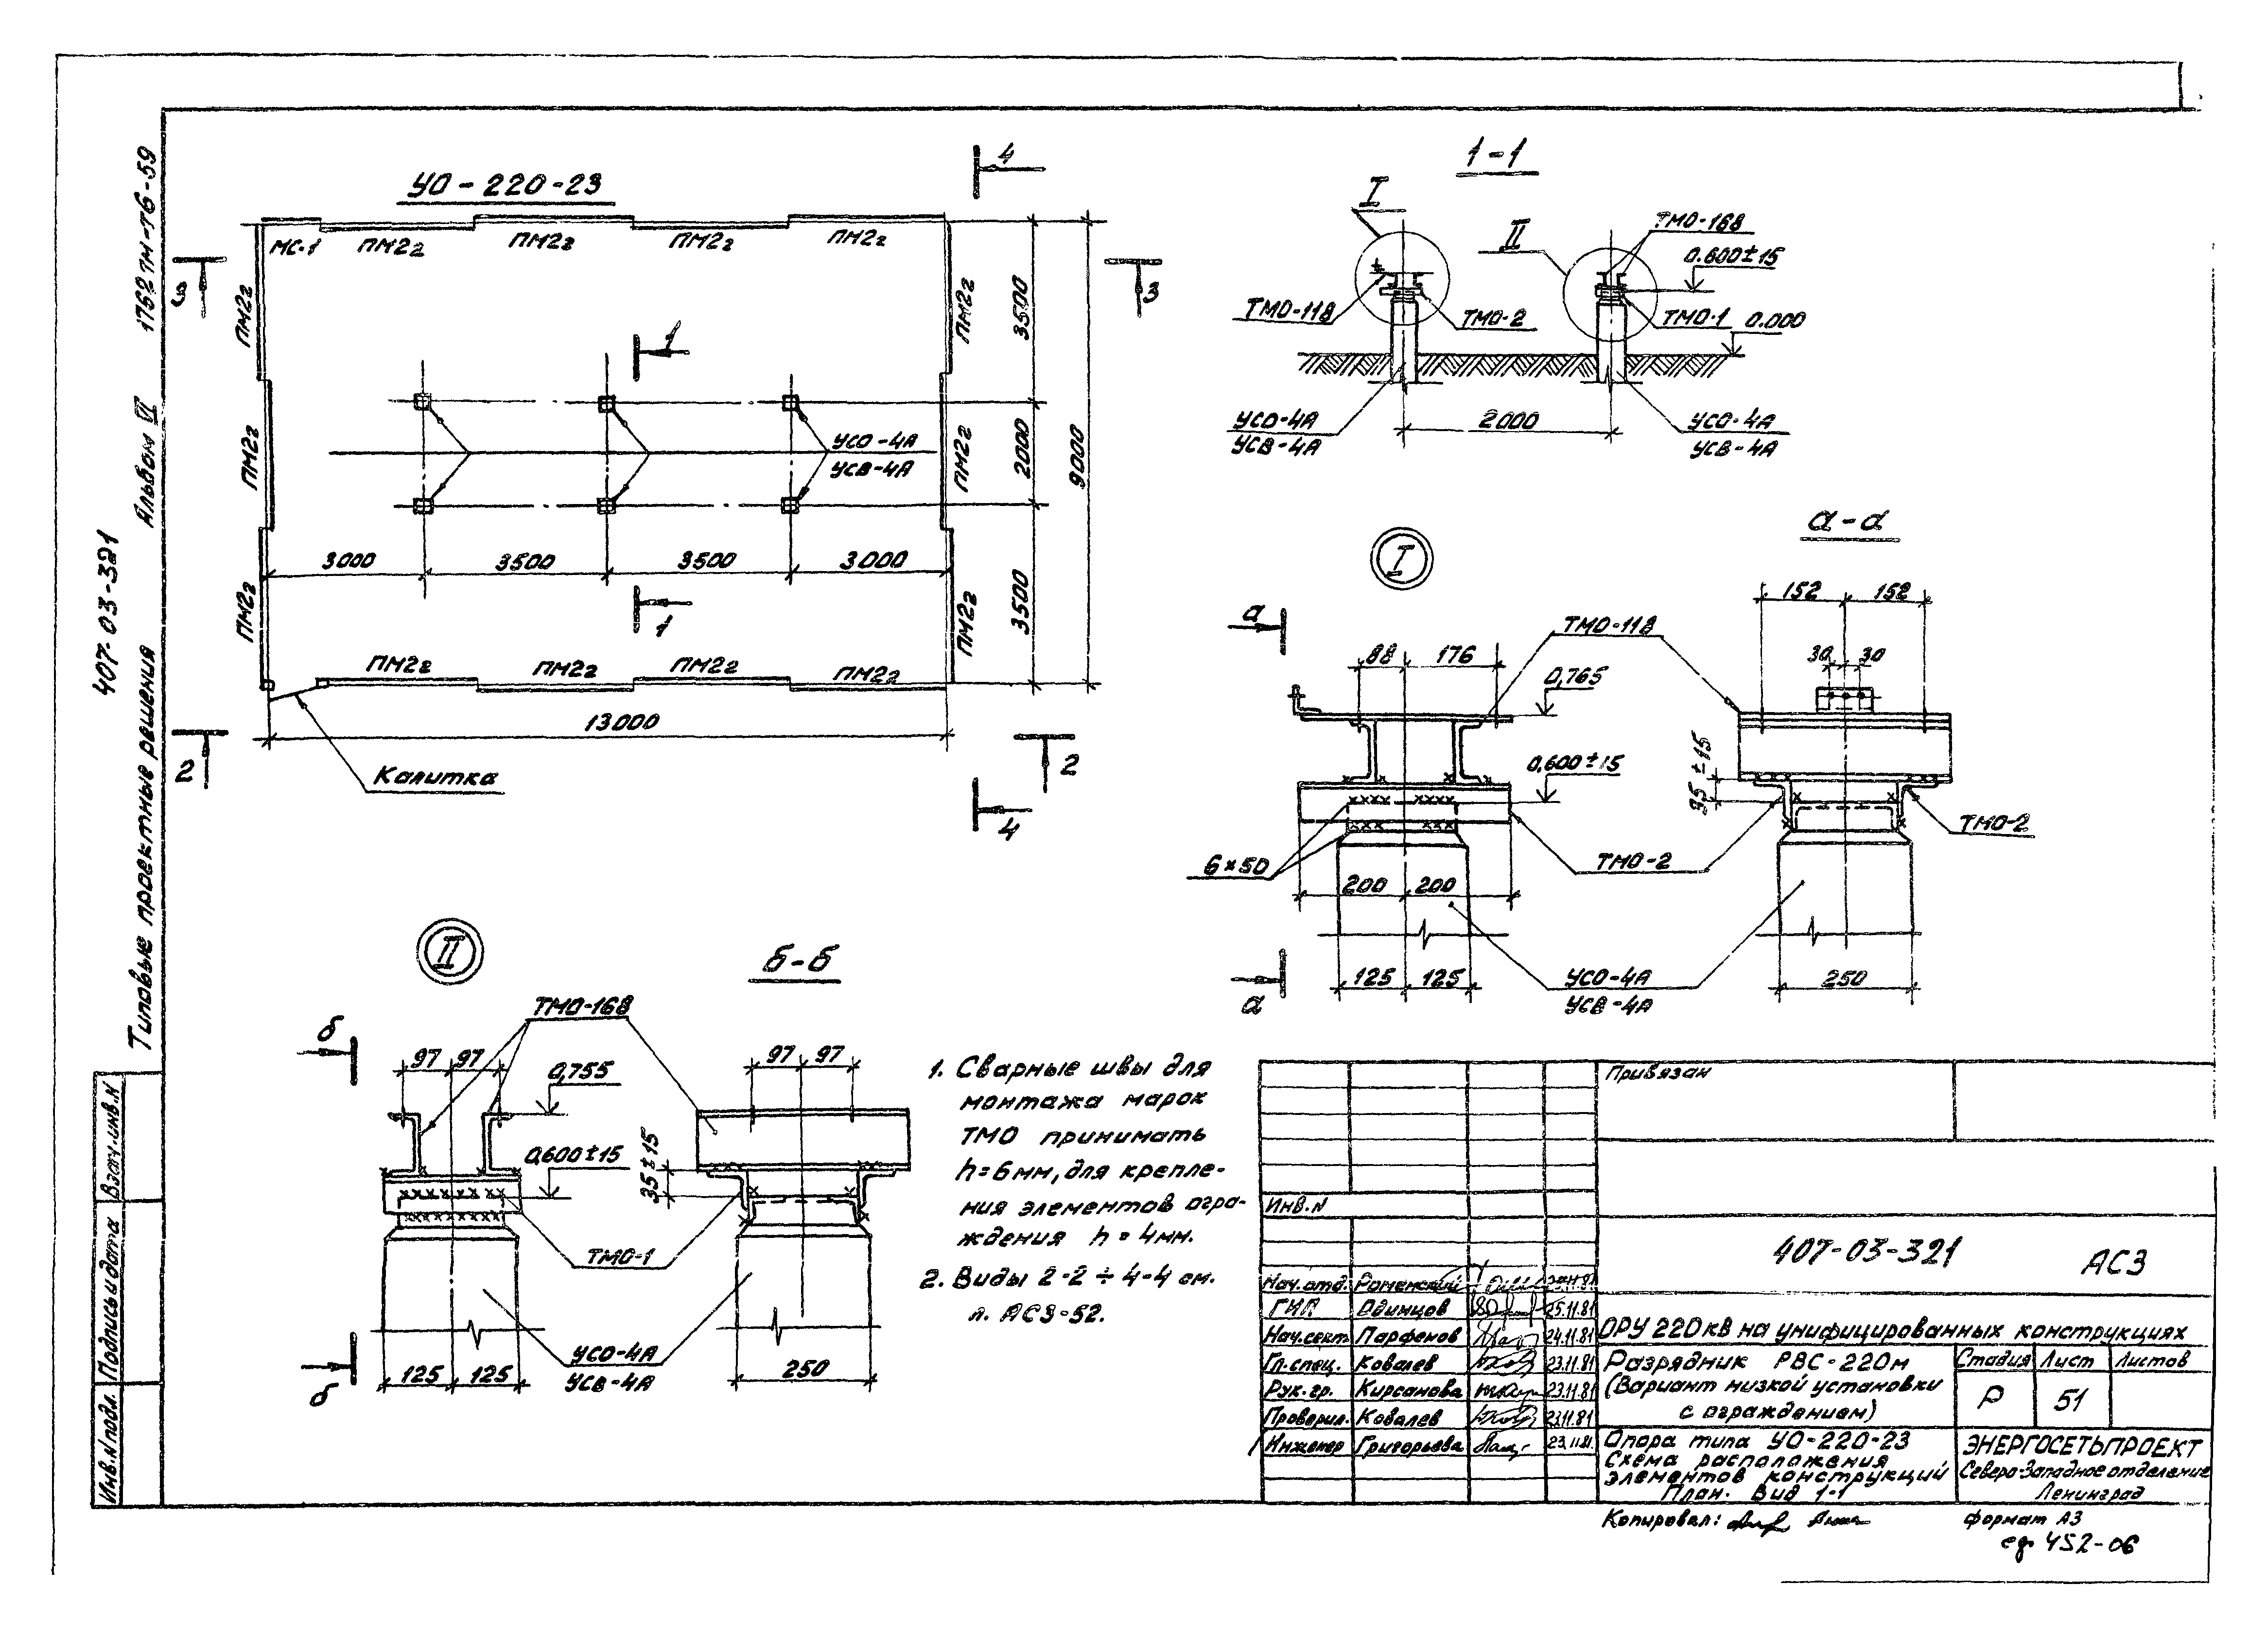 407-03-321
Типовые проектные решения
Альбом VI
1762тм-т6-59
Взам.инв.N
Подпись и дата
Инв.N подл.
УО-220-23
МС-1
ПМ2г
ПМ2г
ПМ2г
ПМ2г
ПМ2г
ПМ2г
ПМ2г
ПМ2г
ПМ2г
ПМ2г
ПМ2г
ПМ2г
ПМ2г
ПМ2г
4
4
3
3
2
2
1
1
УСО-4А
УСВ-4А
3000
3500
3500
3000
13000
3500
2000
3500
9000
Калитка
1-1
I
II
ТМО-168
0.600±15
ТМО-118
ТМО-2
ТМО-1
0.000
УСО-4А
УСВ-4А
2000
УСО-4А
УСВ-4А
I
а
а
88
176
ТМО-118
0,765
0,600±15
6×50
200
200
ТМО-2
125
125
УСО-4А
УСВ-4А
а-а
152
152
30
30
35±15
ТМО-2
250
II
б
б
ТМО-168
97
97
0,755
0,600±15
ТМО-1
УСО-4А
УСВ-4А
125
125
б-б
97
97
35±15
250
1. Сварные швы для
монтажа марок
ТМО принимать
h=6мм, для крепле-
ния элементов огра-
ждения h=4мм.
2. Виды 2-2÷4-4 см.
л. АС3-52.
Привязан
Инв.N
407-03-321
АС3
Нач.отд. Роменский
ГИП Одинцов 25.11.81
Нач.сект. Парфенов 24.11.81
Гл.спец. Ковалев 23.11.81
Рук.гр. Кирсанова 23.11.81
Проверил. Ковалев 23.11.81
Инженер Григорьева 23.11.81.
ОРУ 220кВ на унифицированных конструкциях
Разрядник РВС-220м
(Вариант низкой установки
с ограждением)
Стадия Лист Листов
Р 51
Опора типа УО-220-23
Схема расположения
элементов конструкций
План. Вид 1-1
ЭНЕРГОСЕТЬПРОЕКТ
Северо-Западное отделение
Ленинград
Копировал:
формат А3
452-06